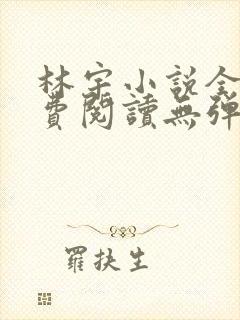 林宇小說全
費閱讀無彈
羅扶生